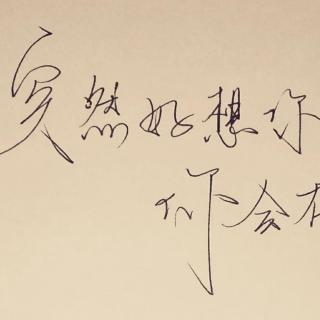 突然好想你
你会在